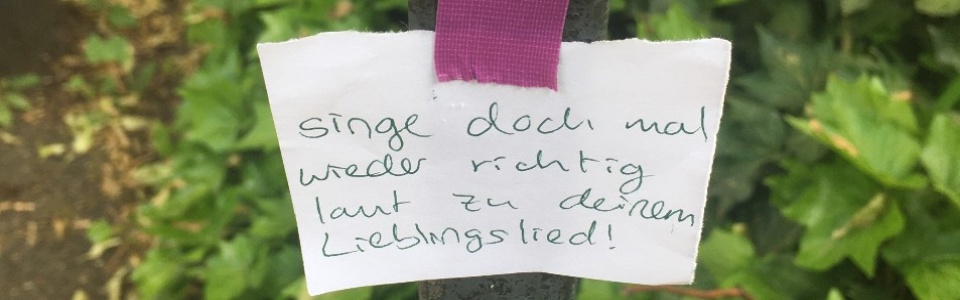 singe doch mal
wieder richtig
laut zu deinem
Lieblingslied!